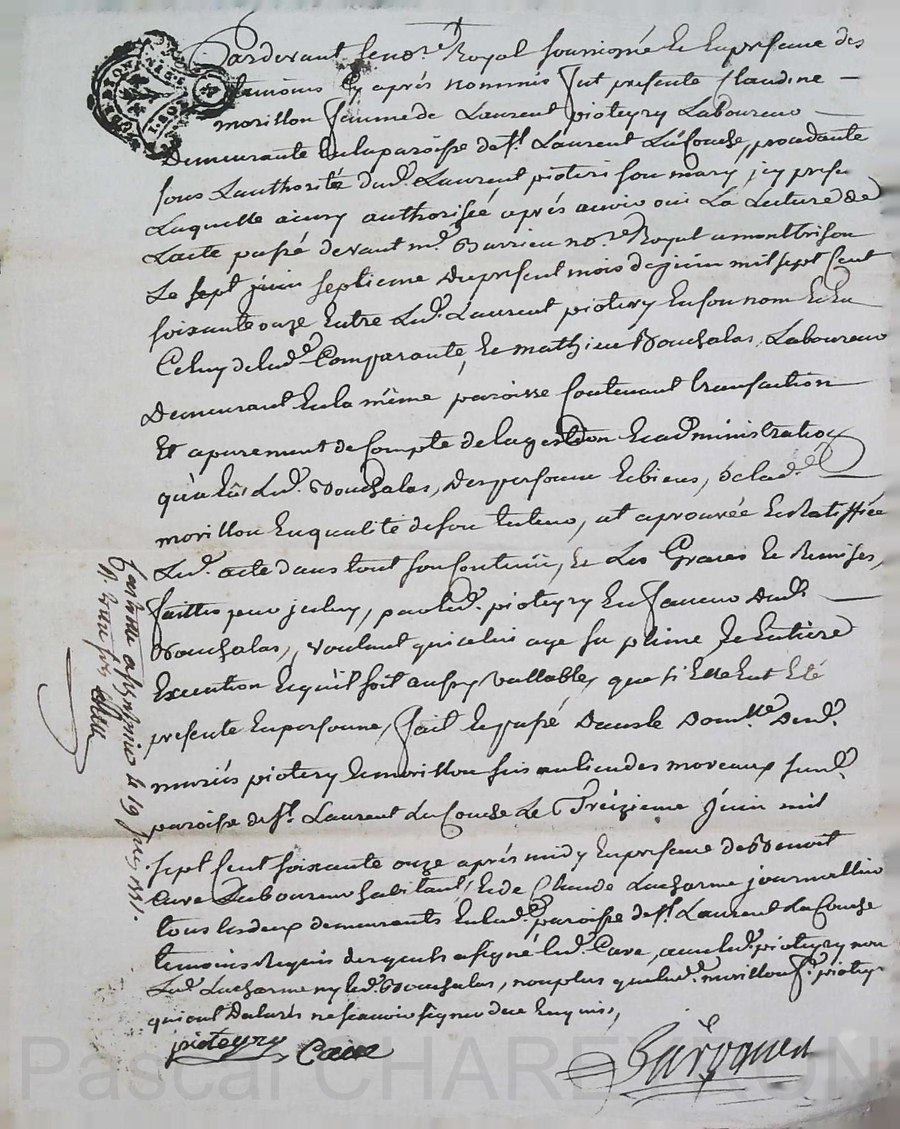 Pardevant le no.re Royal soussigné et en presence des
temoins cy après nommés fut presente Claudine
morillon femme de Laurent pioteyry Laboureur
Demeurante en la paroisse de st. Laurent La Couche, procedante
sous L'authorité dud. Laurent pioteri son mary, icy present
Laquelle authorisée après avoir oui La Lecture de
L'acte passé devant me. Barrieu no.re Royal a montbrison
Le sept juin septieme Du present mois de juin mil sept Cent
soixante onze Entre Led. Laurent pioteyry En son nom Et En
Celuy de lad.e Comparante, Et mathieu Douchalas, Laboureur
Demeurant En la même paroisse Contenant transaction
Et apurement de Compte de la gestion Et administration
qu'a Led. Douchalas, Des personne Et biens, De lad.e
morillon En qualité de son tuteur, at aprouvée Et Ratiffiée
Led. acte dans tout son Contenu, Et Les Graces Et Remises,
faittes par iceluy, par led. pioteyry En faveur Dud.
Douchalas, voulant qu'icelui aye sa pleine Et Entière
Execution Et qu'il soit aussy vallable, que si Elle Eut Eté
presente En personne, fait Et passé Dans le Dom.lle Desd.
mariés pioteyry Et morillon sis au lieu des moreaux sud.
paroisse de st. Laurent La Couche Le Treizieme juin mil
sept Cent soixante onze après midy En presence de Benoit
Cave Laboureur habitant, Et de Claude Lacharme journallier
tous Les deux demeurants En lad.e paroisse de st. Laurent La Couche
temoins Requis desquels a signé led. Cave, avec led. pioteyry non
Led. Lacharme ny led. Douchalas, non plus que lad.e morillon fe. pioteyry
qui ont Declarés ne scavoir signer de ce Enquis,
pioteyry Cave
Pascal CHAREYRON